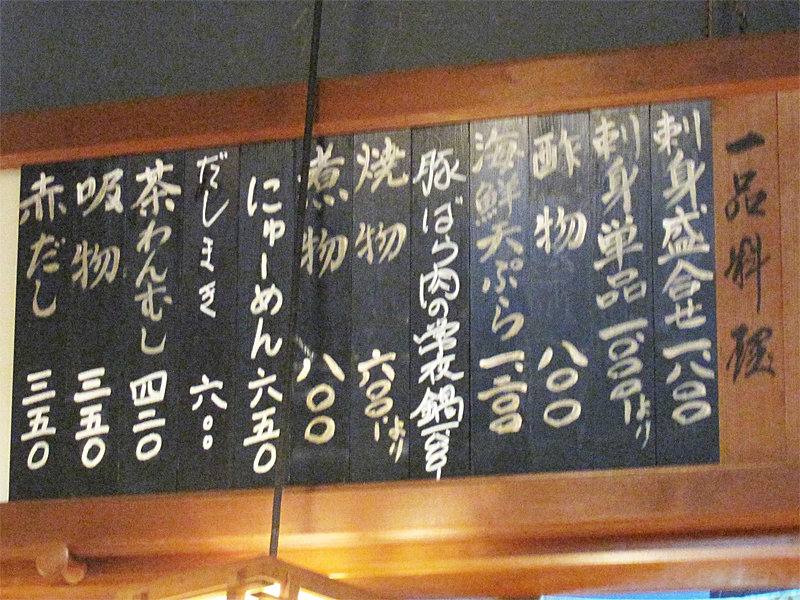 一品料理
刺身盛合せ 一、八〇〇
刺身単品 一、〇〇〇より
酢物 八〇〇
海鮮天ぷら 一、二〇〇
豚ばら肉の常夜鍋
焼物 六〇〇より
煮物 八〇〇
にゅーめん 六五〇
だしまき 六〇〇
茶わんむし 四二〇
吸物 三五〇
赤だし 三五〇